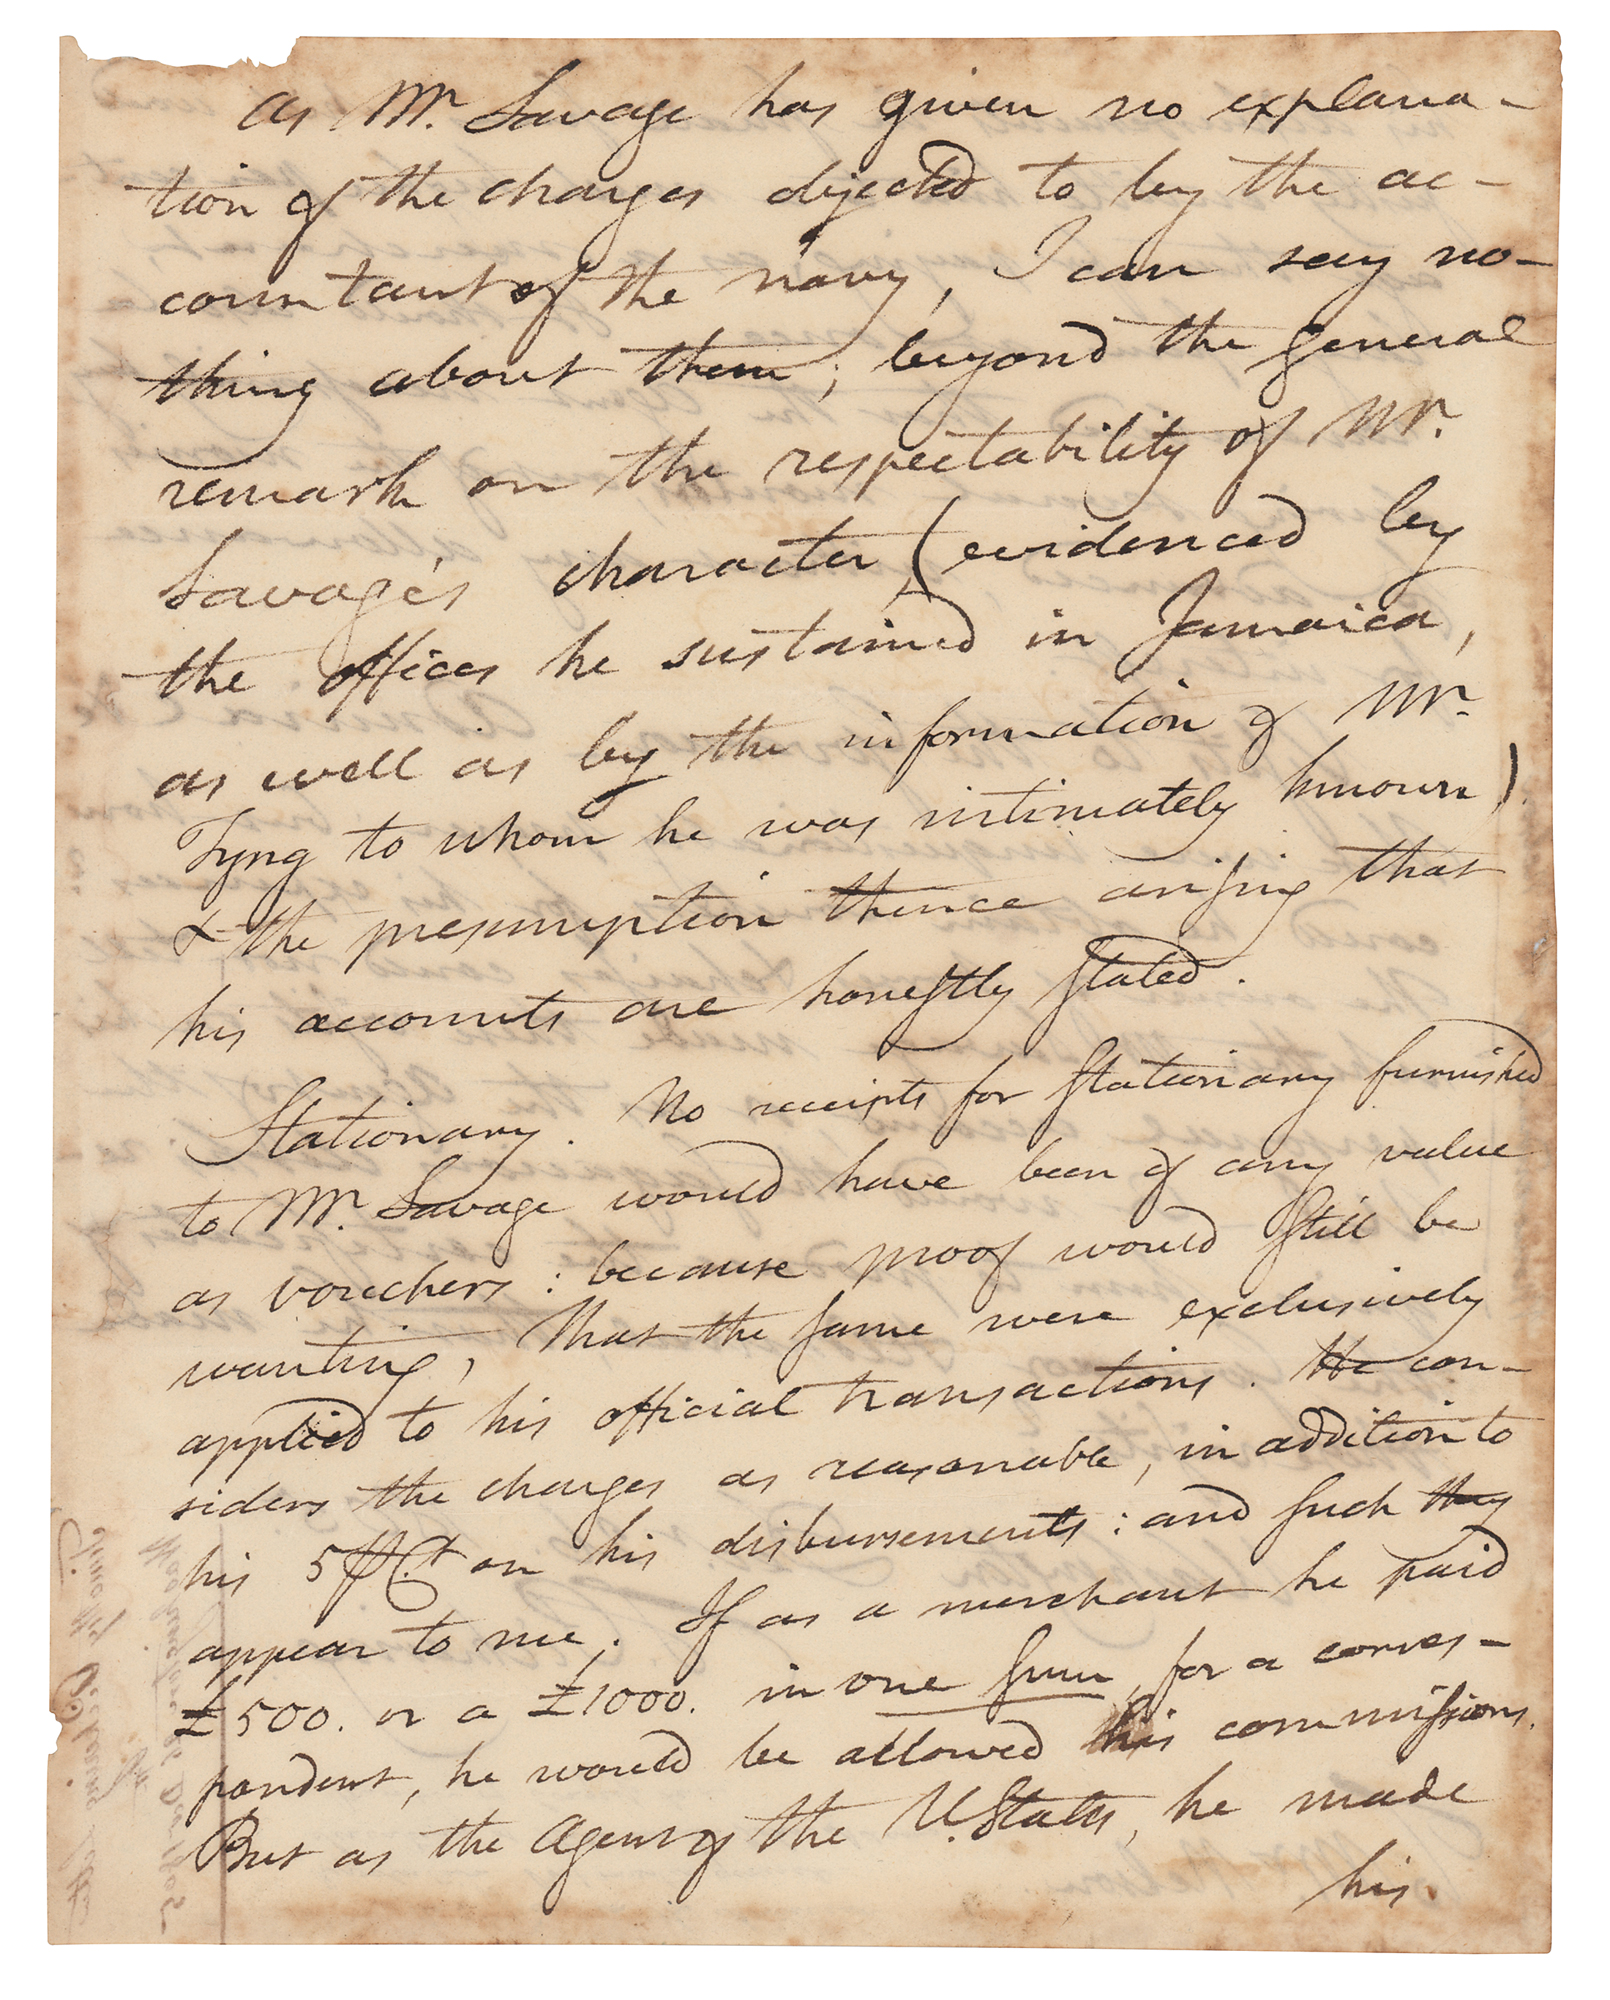 As Mr. Savage has given no explana-
tion of the charges objected to by the ac-
countant of the navy, I can say no-
thing about them; beyond the general
remark on the respectability of Mr.
Savage's character, (evidenced by
the offices he sustained in Jamaica,
as well as by the information of Mr.
Tyng to whom he was intimately known)
& the presumption thence arising that
his accounts are honestly stated.
Stationary. No receipts for stationary furnished
to Mr. Savage would have been of any value
as vouchers: because proof would still be
wanting, that the same were exclusively
applied to his official transactions. He con-
siders the charges as reasonable, in addition to
his 5 ⅌ Ct. on his disbursements: and such they
appear to me. If as a merchant he paid
£500. or a £1000. in one sum, for a corres-
pondent, he would be allowed his commissions.
But as the Agent of the U. States, he made
his